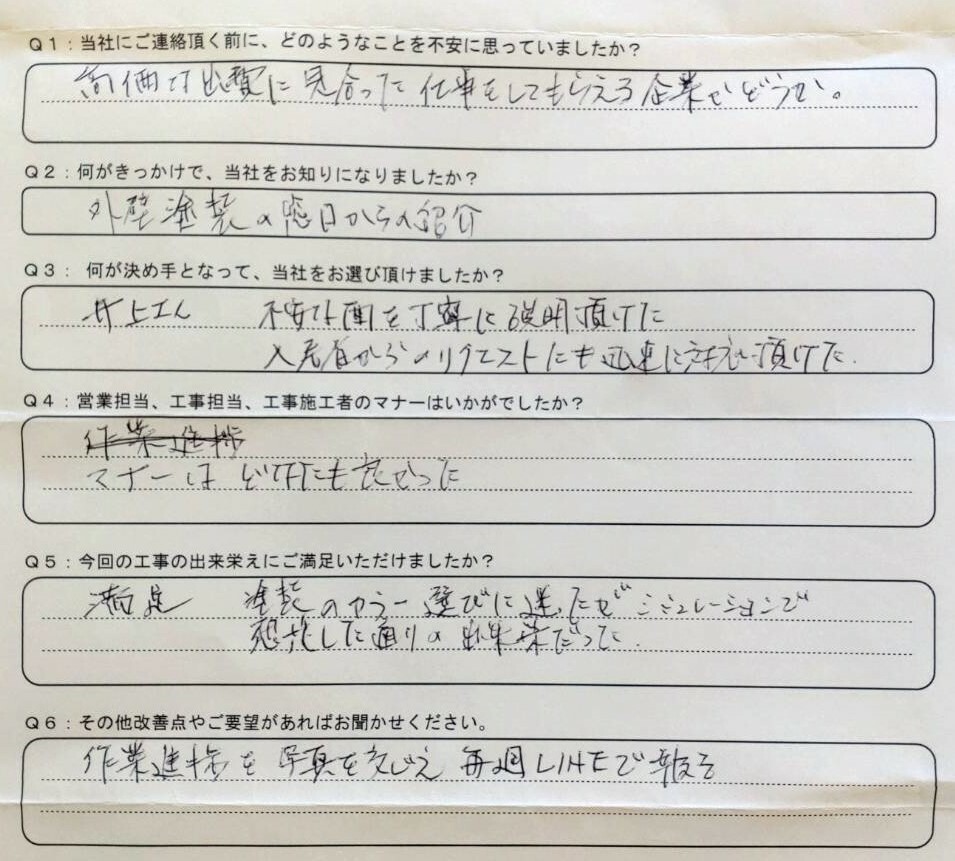 Q1：当社にご連絡頂く前に、どのようなことを不安に思っていましたか？
高価な出費に見合った仕事をしてもらえる企業かどうか。
Q2：何がきっかけで、当社をお知りになりましたか？
外壁塗装の窓口からの紹介
Q3： 何が決め手となって、当社をお選び頂けましたか？
井上さん 不安な面を丁寧に説明頂けた
入居者からのリクエストにも迅速に対応頂けた.
Q4：営業担当、工事担当、工事施工者のマナーはいかがでしたか？
作業進捗
マナーは どなたにも良かった
Q5：今回の工事の出来栄えにご満足いただけましたか？
満足 塗装のカラー選びに迷ったが シミュレーションで
想定した通りの出来栄だった.
Q6：その他改善点やご要望があればお聞かせください。
作業進捗を写真を交じえ 毎週LINEで報告